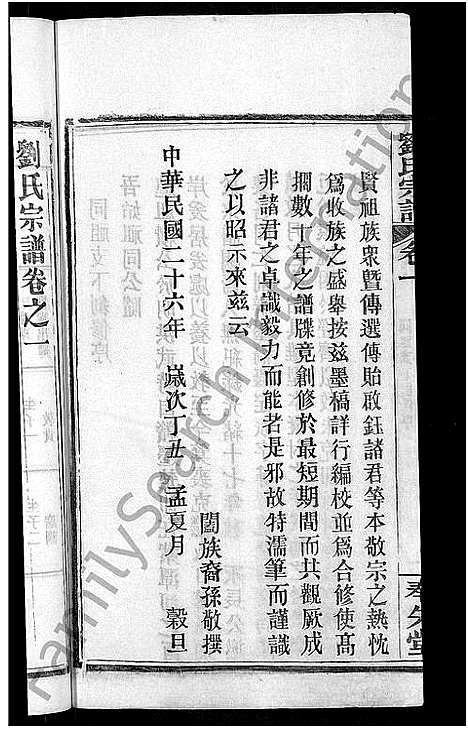 劉氏宗譜 卷一
賢祖族衆曁傳選傳貽啟鈺諸君等本敬宗之熱忱
爲收族之盛舉按兹墨稿詳行編校並爲合修使高
擱數十年之譜牒竟創修於最短期間而共觀厥成
非諸君之卓識毅力而能者是邪故特濡筆而謹識
之以昭示來兹云
闔族裔孫敬撰
中華民國二十六年 歲次丁丑 孟夏月 榖旦
劉氏宗譜卷之一
FamilySearch International